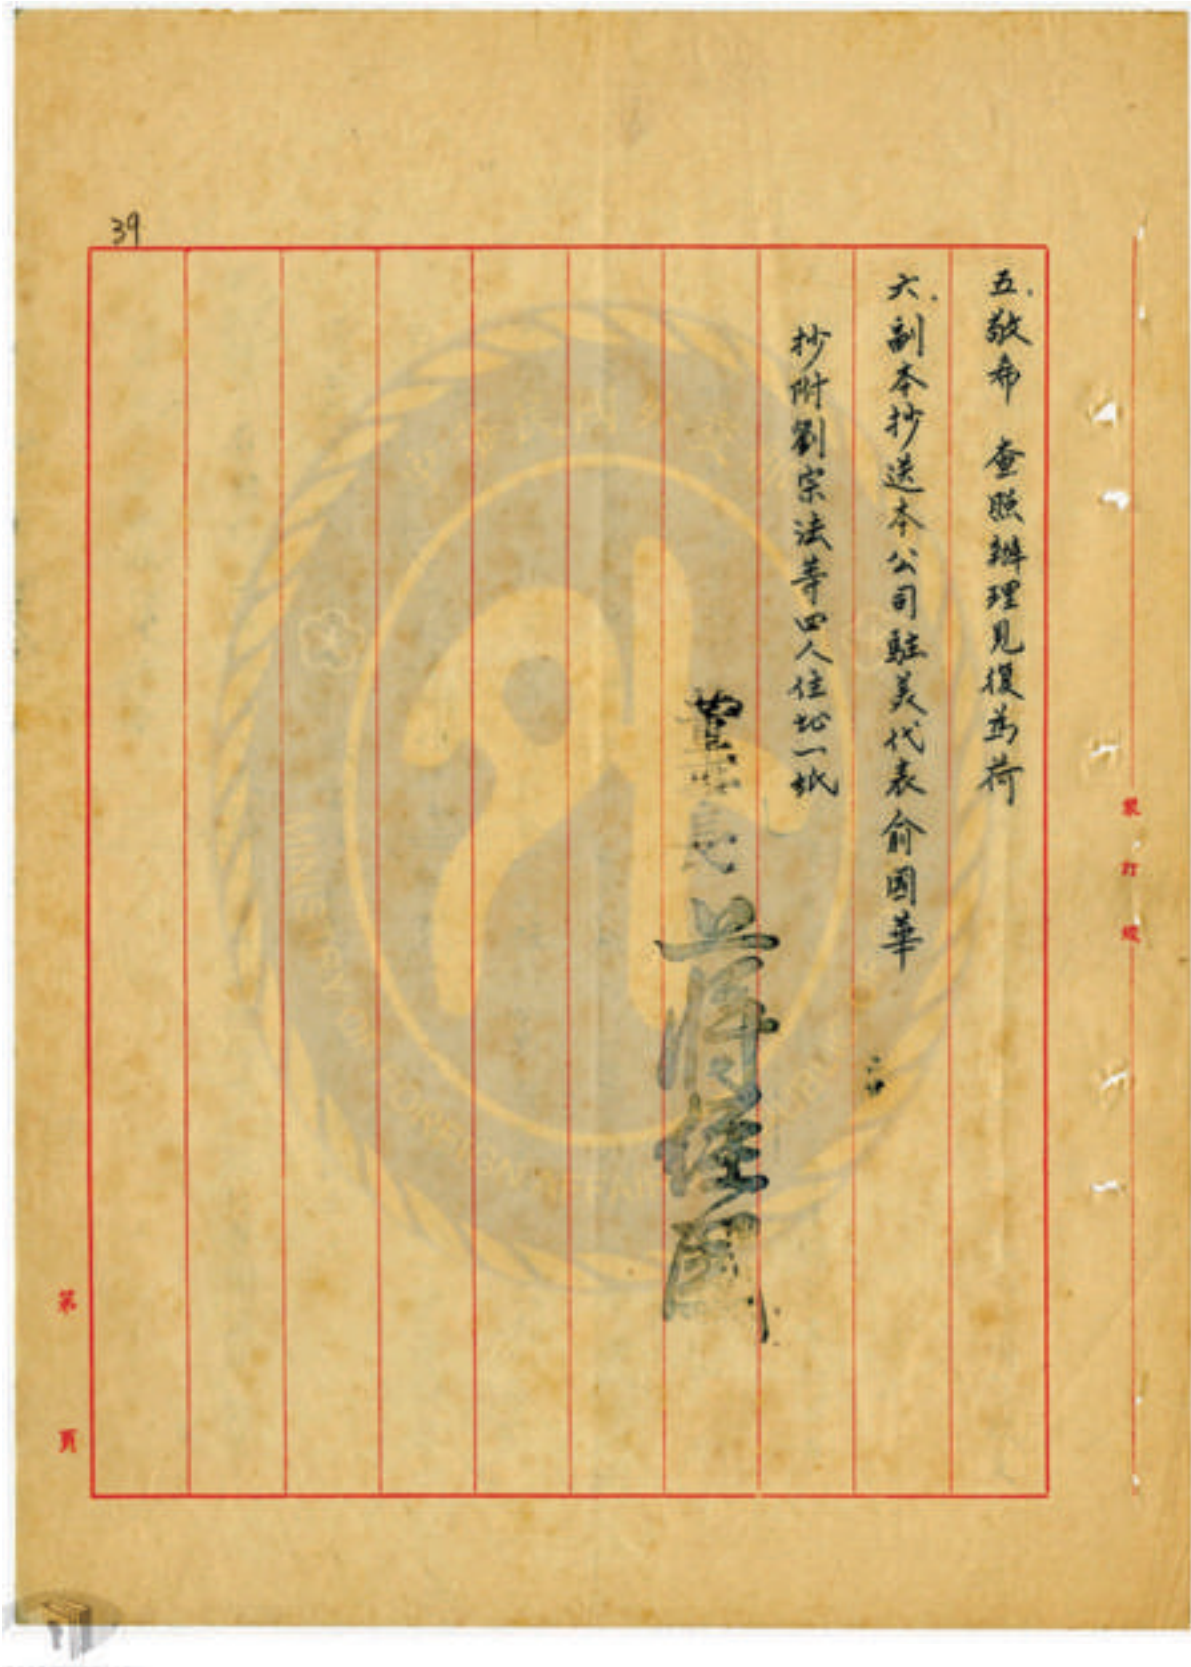 裝訂線
五.敬希 查照辦理見復為荷
六.副本抄送本公司駐美代表俞國華
抄附劉宗法等四人住址一紙
董事長 蔣經國
39
第 頁